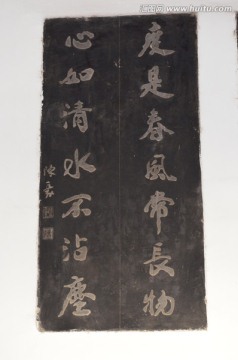 度是春風常長物
心如清水不沾塵